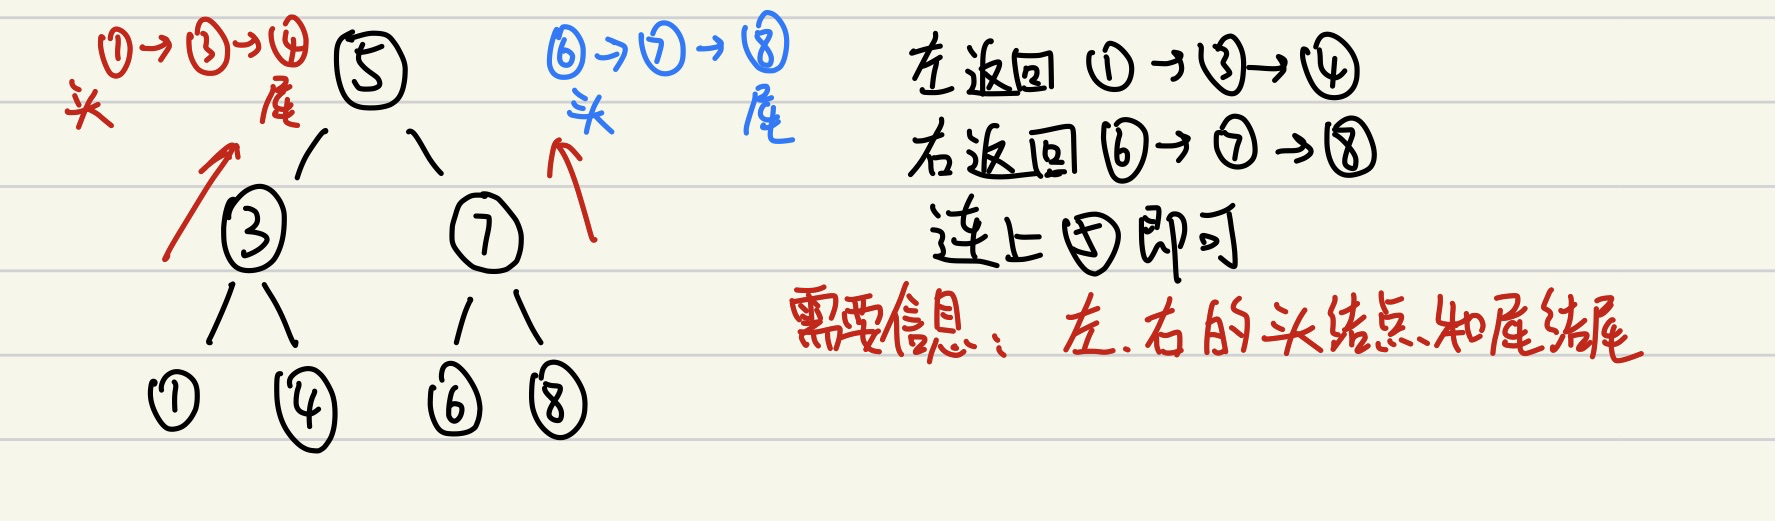 ①→③→④
头 尾
⑥→⑦→⑧
头 尾
⑤
③ ⑦
① ④ ⑥ ⑧
左返回 ①→③→④
右返回 ⑥→⑦→⑧
连上⑤即可
需要信息： 左.右的头结点和尾结尾